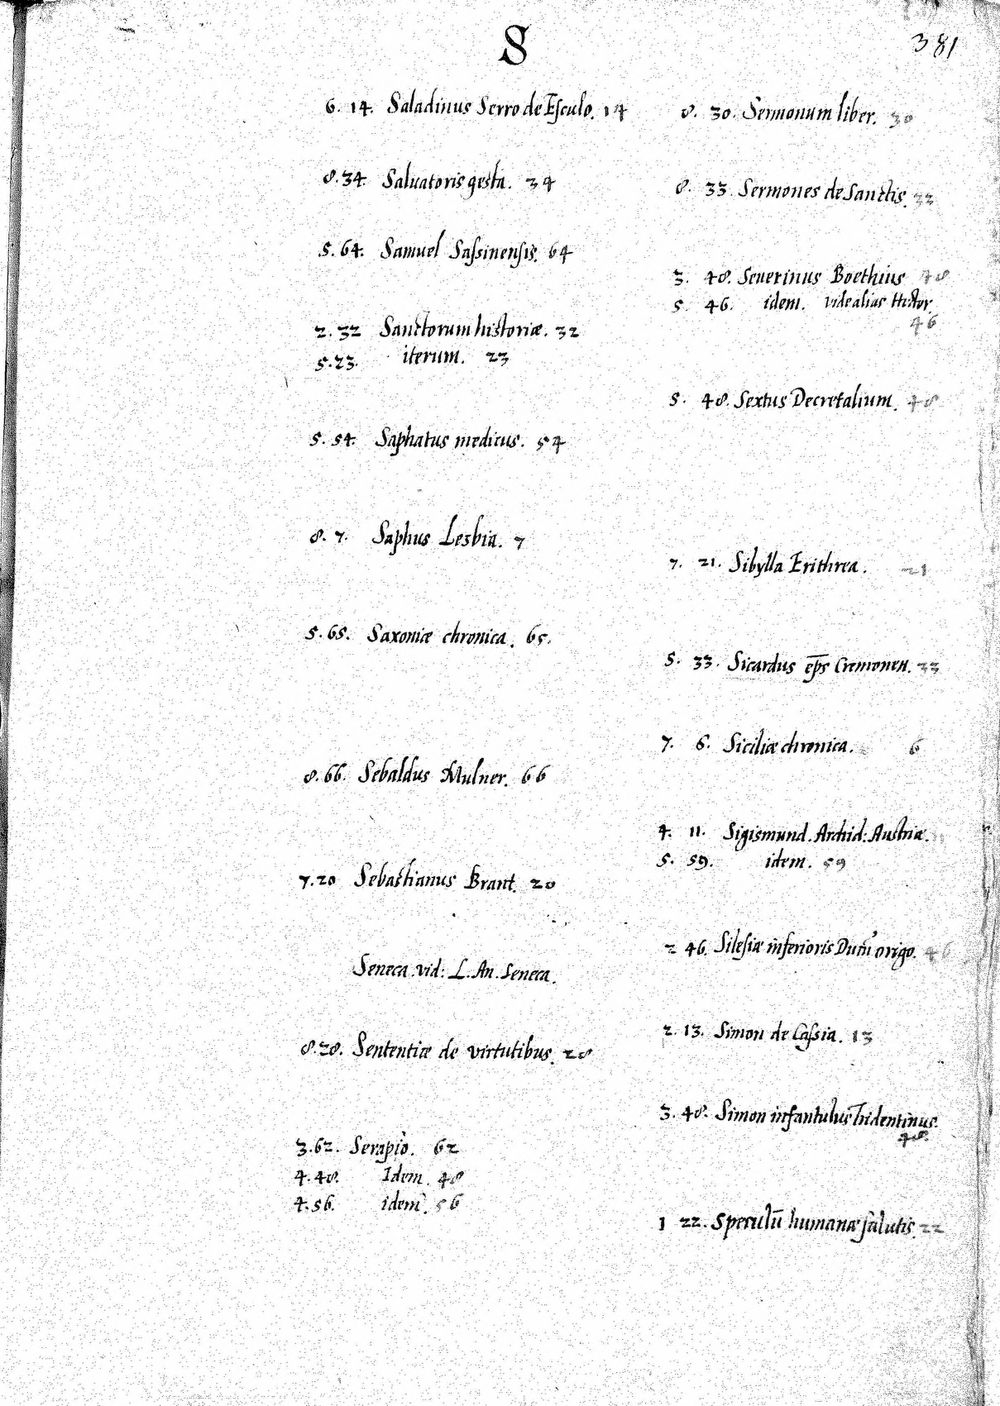 S
381
6. 14. Saladinus Serro de Esculo. 14
8.34. Saluatoris gesta. 34
5.64. Samuel Sassinensis. 64
2.32 Sanctorum historiæ. 32
5.23. iterum. 23
5.54. Saphatus medicus. 54
8.7. Saphus Lesbia. 7
5.65. Saxoniæ chronica. 65.
8.66. Sebaldus Mulner. 66
7.20 Sebastianus Brant. 20
Seneca vid: L. An. Seneca.
8.28. Sententiæ de virtutibus. 28
3.62. Serapio. 62
4.48. Idem. 48
4.56. idem. 56
8. 30. Sermonum liber. 30
8. 33 Sermones de Sanctis. 33
3. 48. Seuerinus Boethius 48
5. 46. idem. vide alias Histor.
46
5. 48. Sextus Decretalium. 48
7. 21. Sibylla Erithrea. 21
5. 33. Sicardus ep̄s Cremonen. 33
7. 6. Siciliæ chronica. 6
4. 11. Sigismund. Archid: Austriæ. 11
5. 59. idem. 59
2 46. Silesiæ inferioris Ducū origo. 46
2. 13. Simon de Cassia. 13
3. 48. Simon infantulus Tridentinus.
48.
1 22. Speculū humanæ salutis. 22